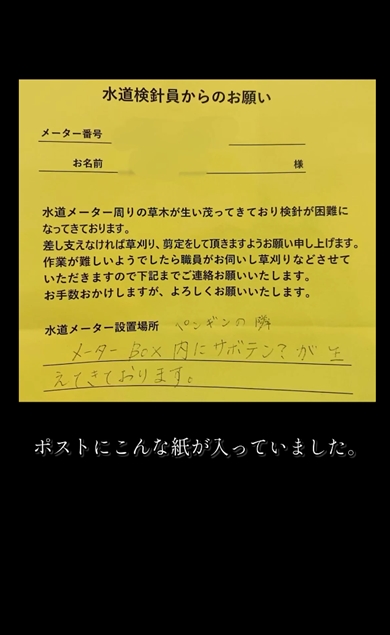 水道検針員からのお願い
メーター番号
お名前 様
水道メーター周りの草木が生い茂ってきており検針が困難に
なってきております。
差し支えなければ草刈り、剪定をして頂きますようお願い申し上げます。
作業が難しいようでしたら職員がお伺いし草刈りなどさせて
いただきますので下記までご連絡お願いいたします。
お手数おかけしますが、よろしくお願いいたします。
水道メーター設置場所 ペンギンの隣
メーターBOX内にサボテン?が生
えてきております。
ポストにこんな紙が入っていました。